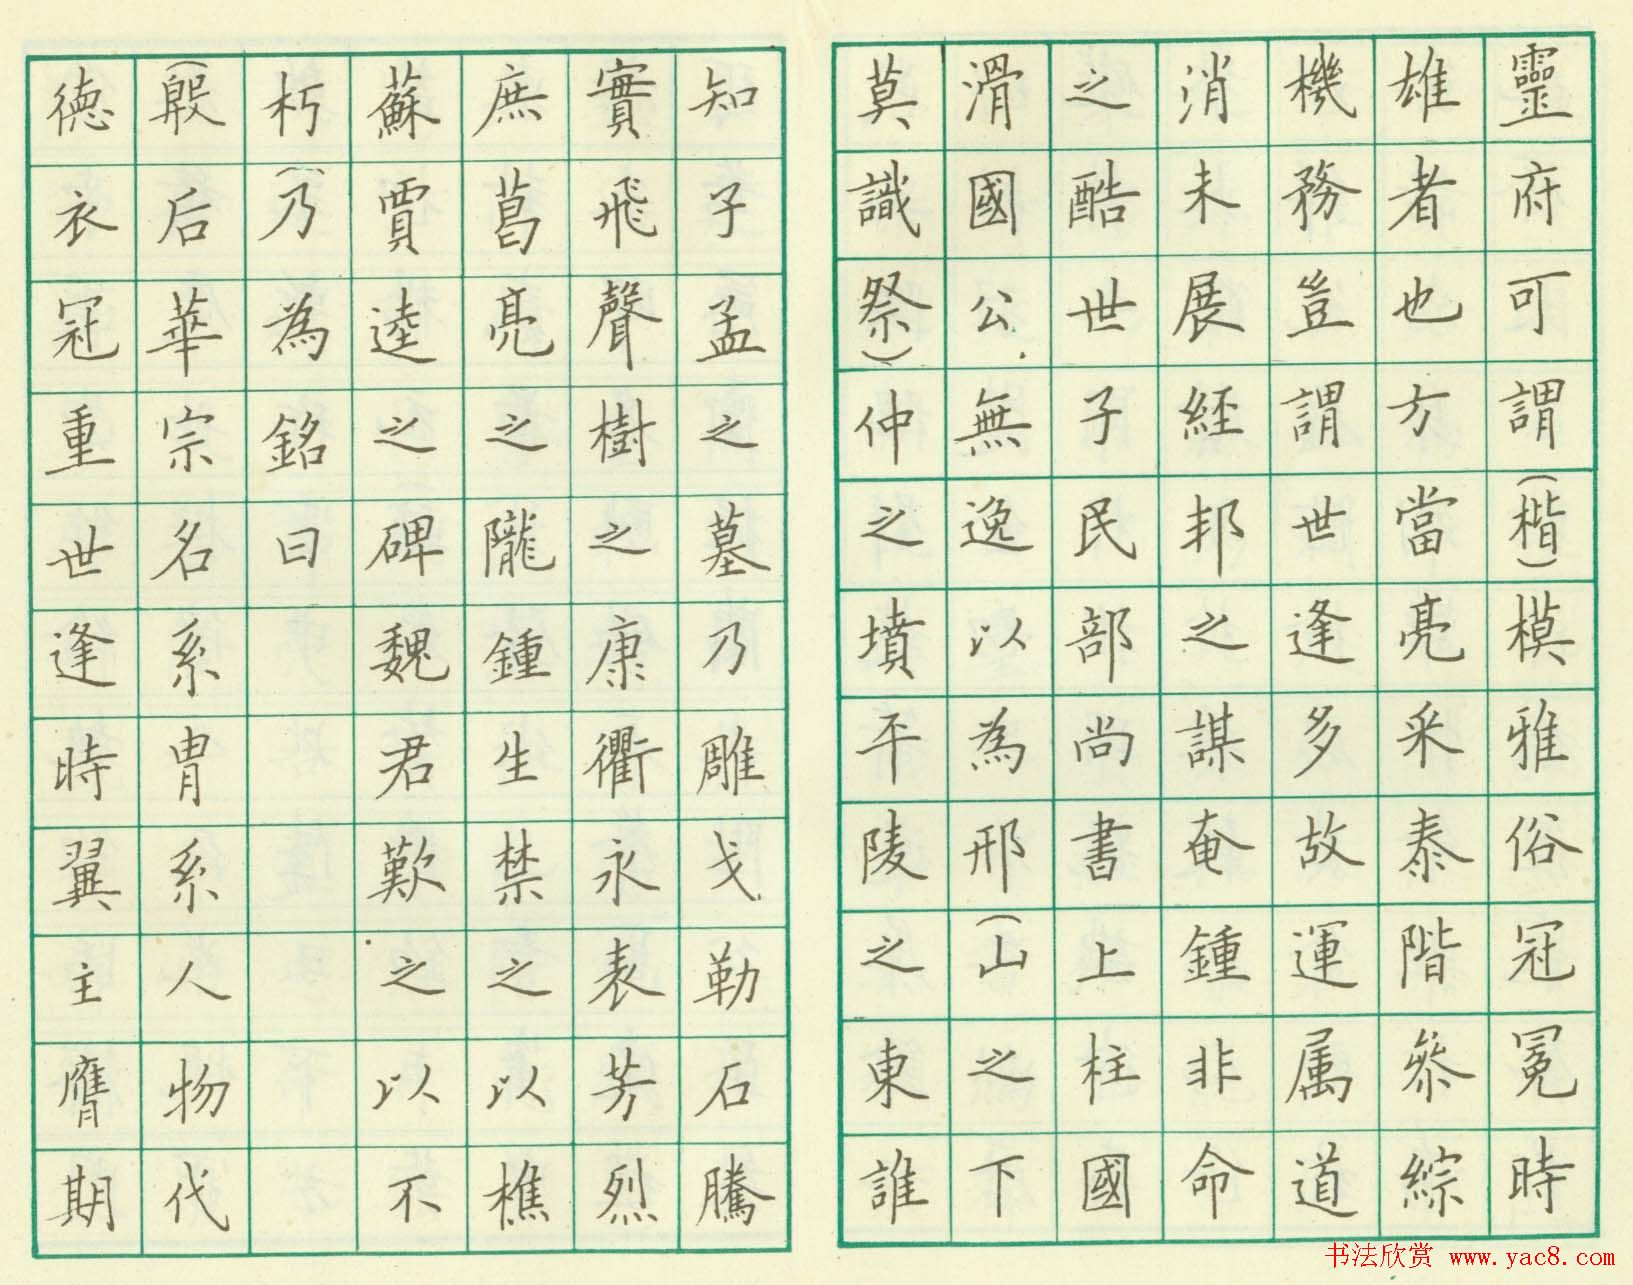 靈府可謂(楷)模雅俗冠冕時
雄者也方當亮采泰階參綜
機務豈謂世逢多故運属道
消未展經邦之謀奄鍾非命
之酷世子民部尚書上柱國
滑國公無逸以為邢(山之下
莫識祭)仲之墳平陵之東誰
知子孟之墓乃雕戈勒石騰
實飛聲樹之康衢永表芳烈
庶葛亮之隴鍾生禁之以樵
蘇賈逵之碑魏君歎之以不
朽(乃為銘曰
(殷后華宗名系胄系人物代
德衣冠重世逢時翼主膺期
书法欣赏 www.yac8.com